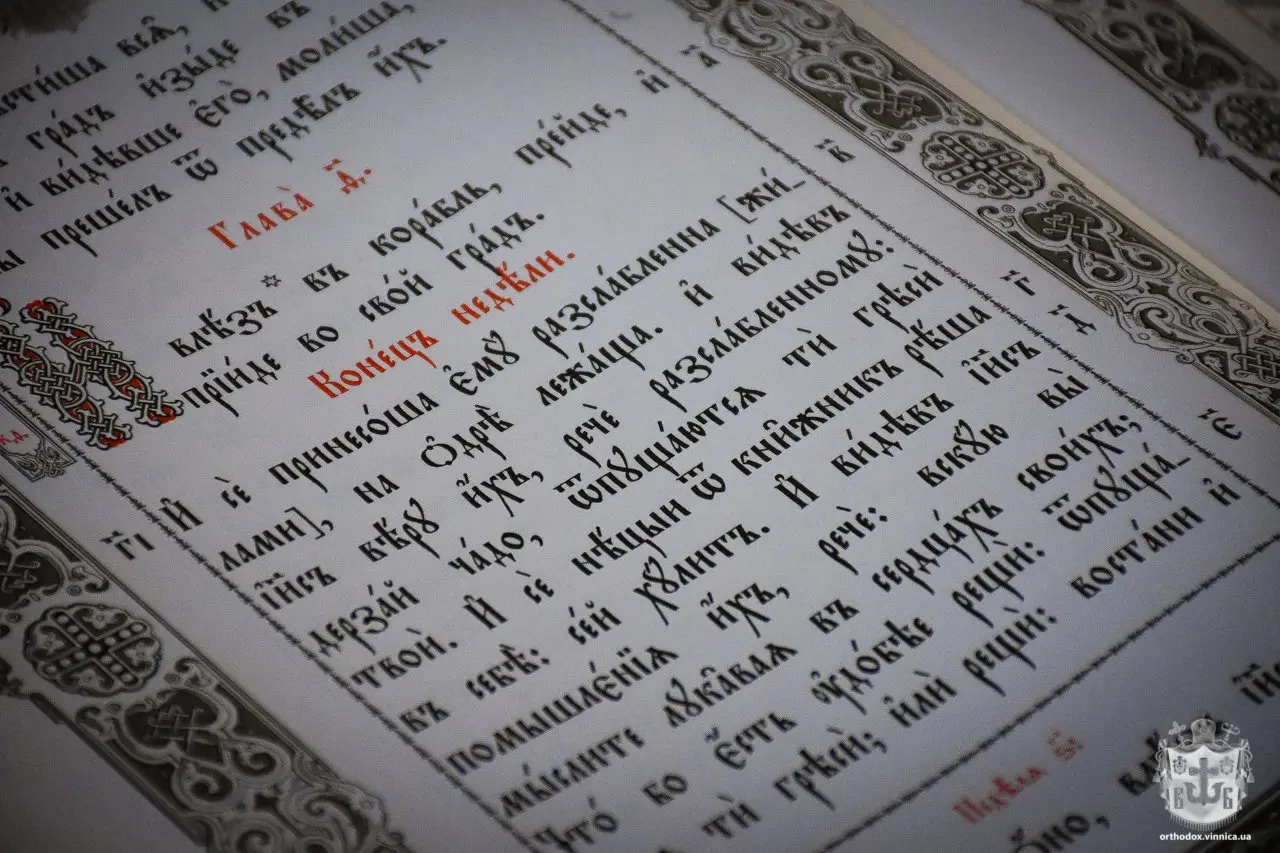 гра́дъ и҆зы́де въ
и҆ ви́дѣвше є҆го̀, моли́ша,
преше́лъ ѿ предѣ̑лъ и҆́хъ.
Глава̀ ѳ҃.
И҆ влѣ́зъ * въ кора́бль, пре́йде, и҆ а҃
прїи́де во сво́й гра́дъ.
Коне́цъ недѣ́ли.
г҃і И҆ сѐ принесо́ша є҆мꙋ̀ разсла́бленна [жи́- в҃
лами], на ѻ҆дрѣ̀ лежа́ща. и҆ ви́дѣвъ
і҆и҃съ вѣ́рꙋ и҆́хъ, речѐ разсла́бленномꙋ:
дерза́й ча́до, ѿпꙋща́ютсѧ тѝ грѣсѝ
твоѝ. И҆ сѐ нѣ́цыи ѿ кни̑жникъ рѣ́ша г҃
въ себѣ̀: се́й хꙋ́литъ. И҆ ви́дѣвъ і҆и҃съ д҃
помышлє́нїѧ и҆́хъ, речѐ: вскꙋ́ю вы̀
мы́слите лꙋка̑ваѧ въ сердца́хъ свои́хъ;
Что́ бо є҆́сть ᲂу҆до́бѣе рещѝ: ѿпꙋща́- є҃
тѝ грѣсѝ; и҆лѝ рещѝ: воста́ни и҆
orthodox.vinnica.ua